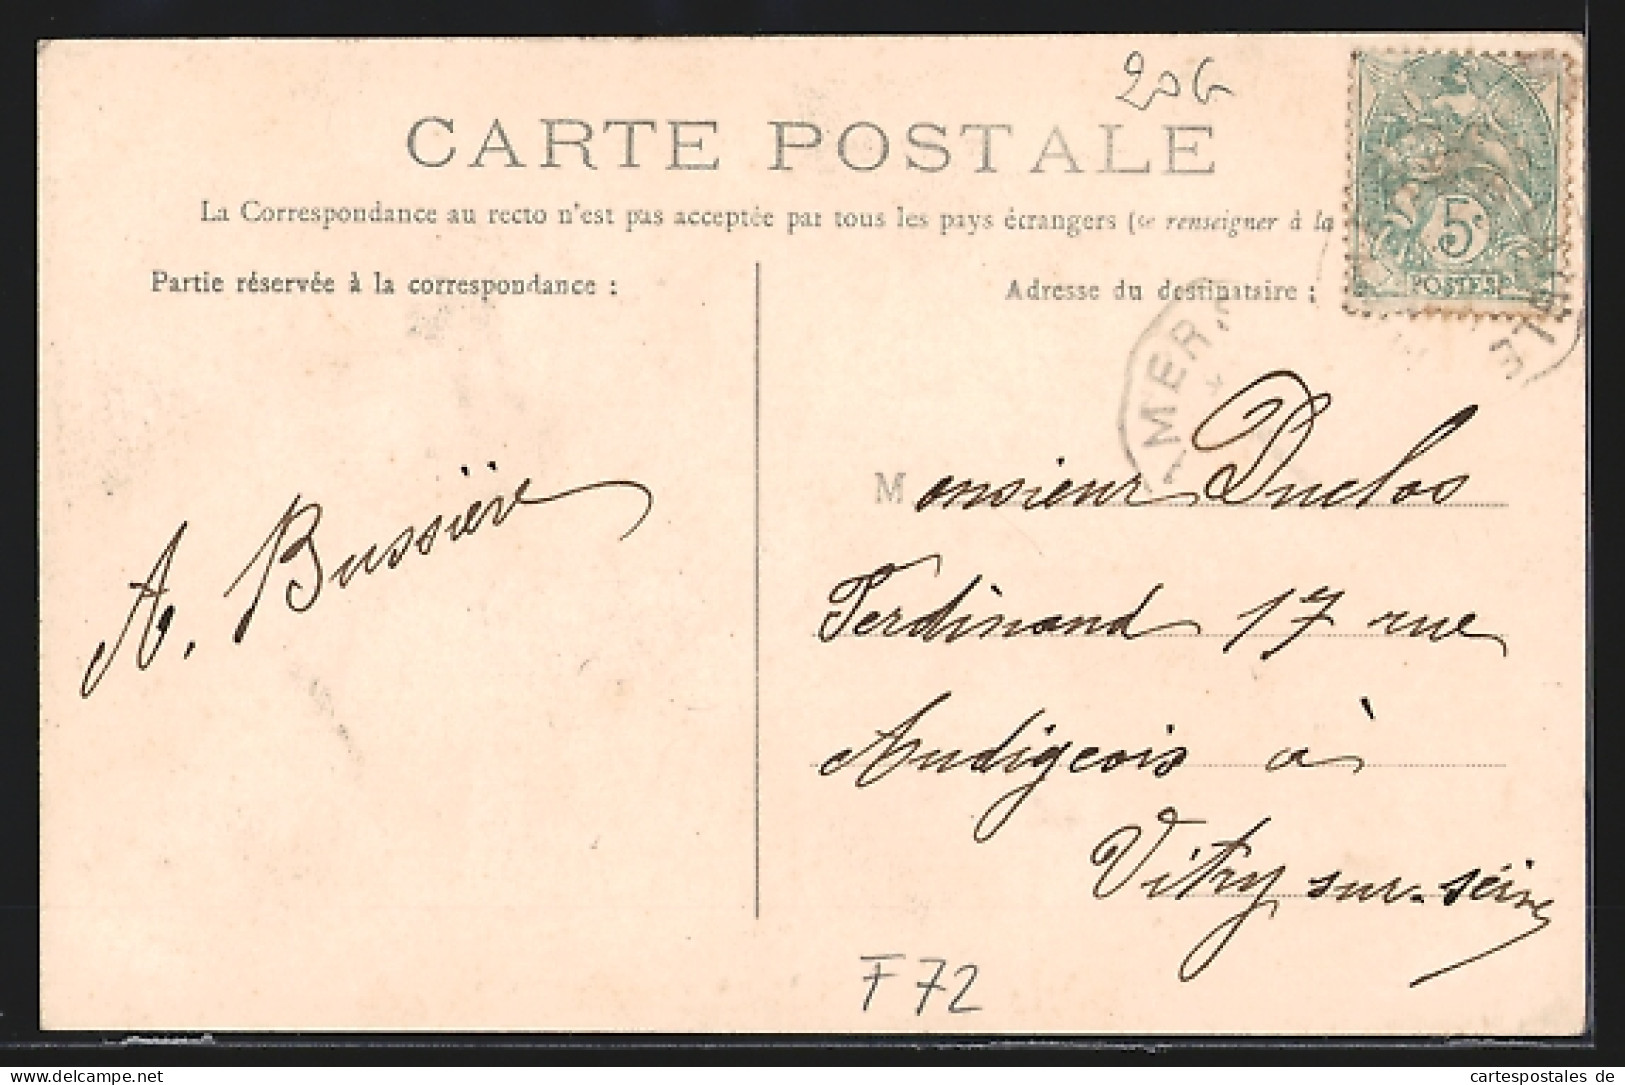 206
CARTE POSTALE
La Correspondance au recto n'est pas acceptée par tous les pays étrangers (se renseigner à la
5c
POSTES
Partie réservée à la correspondance :
Adresse du destinataire :
MER
Monsieur Duclos
A. Bussière
Ferdinand 17 rue
Audigeois à
Vitry sur-seine
F 72
delcampe.net
cartespostales de